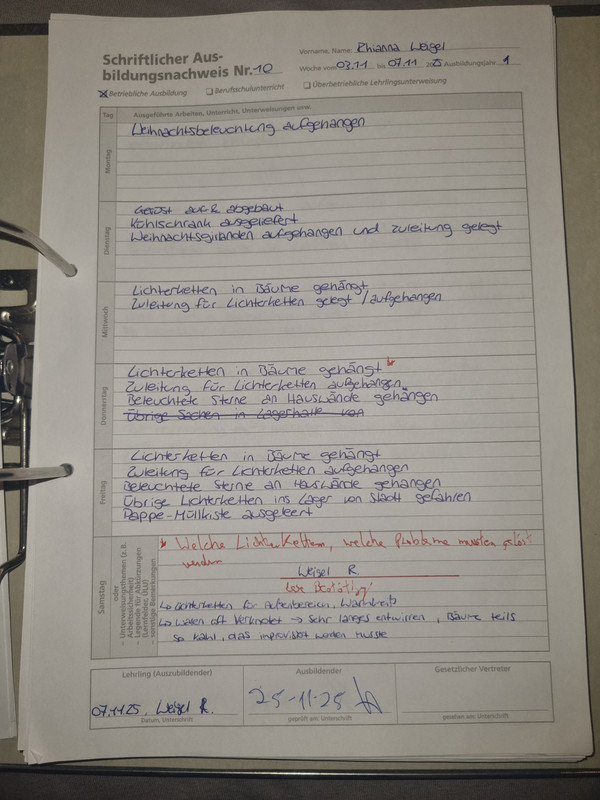 Schriftlicher Aus-
bildungsnachweis Nr. 10
Vorname, Name: Rhianna Weigel
Woche vom 03.11 bis 07.11 2025 Ausbildungsjahr 1
Betriebliche Ausbildung Berufsschulunterricht Überbetriebliche Lehrlingsunterweisung
Tag Ausgeführte Arbeiten, Unterricht, Unterweisungen usw.
Montag
Weihnachtsbeleuchtung aufgehangen
Dienstag
Gerüst auf R abgebaut
Kühlschrank ausgeliefert
Weihnachtsgirlanden aufgehangen und Zuleitung gelegt
Mittwoch
Lichterketten in Bäume gehängt
Zuleitung für Lichterketten gelegt / aufgehangen
Donnerstag
Lichterketten in Bäume gehängt *
Zuleitung für Lichterketten aufgehangen
Beleuchtete Sterne an Hauswände gehangen
Übrige Sachen in Lagerhalle von
Freitag
Lichterketten in Bäume gehängt
Zuleitung für Lichterketten aufgehangen
Beleuchtete Sterne an Hauswände gehangen
Übrige Lichterketten ins Lager von Stadt gefahren
Pappe-Müllkiste ausgeleert
Samstag
oder
– Unterweisungsthemen (z.B. Arbeitssicherheit)
– Legende für Abkürzungen (Lernfelder, ÜLU)
– sonstige Bemerkungen
* Welche Lichterketten, welche Probleme mussten gelöst
werden
Weigel R
↳ Lichterketten für Außenbereich, Warmweiß
↳ Waren oft Verknotet → Sehr langes entwirren, Bäume teils
so kahl, das improvisiert werden musste
Lehrling (Auszubildender) Ausbildender Gesetzlicher Vertreter
07.11.25, Weigel R. 25-11-25
Datum, Unterschrift geprüft am: Unterschrift gesehen am: Unterschrift